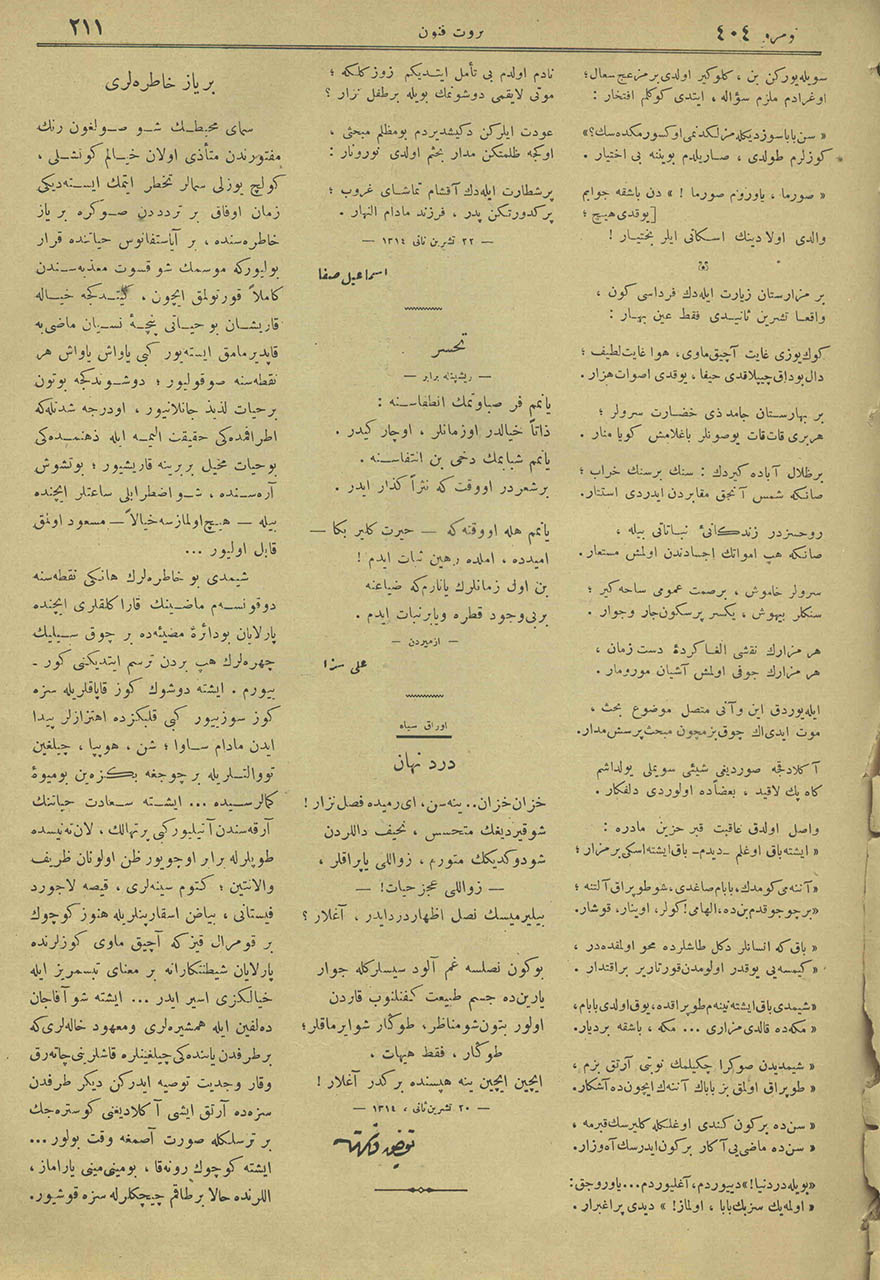 نومرو ٤٠٤
ثروت فنون
٢١١
سویله‌یوركن بن ، كلوكیر اولدی بر مزعج سعال ؛
اوغرادم ملزم سؤاله ، ایتدی كوكلم افتخار :
« سن باباسوز دیكله مز لكدنمی اوكسور مكده‌سك ؟»
كوزلرم طولدی ، صاریلدم بویننه بی اختیار .
« صورما ، یاوروم صورما ! » دن باشقه جوابم
[یوقدی هیچ ؛
والدی اولادینك اسكاتی ایلر بختیار !
بر مزارستان زیارت ایله‌دك فرداسی كون ،
واقعا تشرین ثانیدی فقط عین بهار :
كوك یوزی غایت آچیق ماوی، هوا غایت لطیف ؛
دال بوداق چیپلاقدی حیفا ، یوقدی اصوات هزار .
بر بهارستان جامد ذی خضارت سرولر ؛
هربری قات قات یوصونلر باغلامش كویا منار .
بر ظلال آباده كیردك : سنك بر سنك خراب ؛
صانكه شمس آنجق مقابردن ایدردی استتار .
روحسزدر زندكانئ نباتاتی بیله ،
صانكه هپ امواتك اجسادندن اولمش مستعار .
سرولر خاموش ، بر صمت عمومی ساحه كیر ؛
سنكلر بیهوش ، یكسر پرسكون جار وجوار .
هر مزارك نقشی الغا كردۀ دست زمان ،
هر مزارك جوفی اولمش آشیان مور و مار .
ایله‌یوردق این وآنی متصل موضوع بحث ،
موت ایدی اك چوق بزمچون مبحث پرسش مدار.
آكلادقجه صوردیغی شیئی سویملی یولداشم
كاه پك لاقید ، بعضاً ده اولوردی دلفكار .
واصل اولدق عاقبت قبر حزین مادره :
« ایشته باق اوغلم ـ دیدم ـ باق ایشته اسكی بر مزار ؛
« آننه می كومدك، بابام صاغدی، شو طوپراق آلتنه ؛
« بر چوجوقدم بن ده، الهامی ! كولر، اوینار، قوشار.
« باق كه انسانلر دكل طاشلرده محو اولمقده‌در ،
« كیمسه‌یی یوقدر اولومدن قورتاریر بر اقتدار .
« شیمدی باق ایشته نینه‌م طوپراقده، یوق اولدی بابام،
« مكه‌ده قالدی مزاری ... مكه ، باشقه بر دیار.
« شیمدیدن صوكرا چكیلمك نوبتی آرتق بزم ،
« طوپراق اولمق بز باباك آننه‌ك ایچون ده آشكار.
« سن ده بر كون كندی اوغلكله كلیرسك قبرمه ،
« سن ده ماضی یی آكار بر كون ایدرسك آه وزار.
« بویله در دنیا !» دییوردم، آغلیوردم... یاوروجق:
« اولمه‌یك سز بك بابا ، اولماز ! » دیدی پر اغبرار .
نادم اولدم بی تأمل ایتدیكم زوز كلكه ؛
موتی لایقمی دوشونمك بویله بر طفل نزار ؟
عودت ایلركن دكیشدیردم بو مظلم مبحثی ،
اوكجه ظلمتكن مدار بحثم اولدی نورونار :
پر شطارت ایله‌دك آقشام تماشای غروب ؛
پر كدورتكن پدر ، فرزند مادام النهار .
— ٢٢ تشرین ثانی ١٣١٤ —
اسماعیل صفا
تحسر
— ریشپنه برابر —
یانمم فر صباوتمك انطفاسنه :
ذاتاً خیالدر اوزمانلر ، اوچار كیدر .
یانمم شبابمك دخی بن انتفاسنه .
بر شعردر اووقت كه نثراً كذار ایدر .
یانمم هله اووقته كه — حیرت كلیر بكا —
امیدده ، املده رهین ثبات ایدم !
بن اول زمانلرك یانارم كه ضیاعنه
بر بی وجود قطره ویا بر نبات ایدم .
— ازمیردن —
علی سزا
اوراق سیاه
درد نهان
خزان خزان.. ینه‌سن، ای رمیده فصل نزار !
شو قیردیغك متحسس ، نحیف داللردن
شو دوكدیكك متورم ، زواللی یاپراقلر ،
— زواللی عجز حیات ! —
بیلیرمیسك نصل اظهار درد ایدر ، آغلار ؟
بوكون نصلسه غم آلود سیسلركله جوار
یارین ده جسم طبیعت كفنلنوب قاردن
اولور بتون شو مناظر، طوكار شو ایرماقلر ؛
طوكار ، فقط هیهات ،
ایچین ایچین ینه هپسنده بر كدر آغلار !
— ٢٠ تشرین ثانی ، ١٣١٤ —
توفیق فكرت
بر یاز خاطره‌لری
سمای محیطك شو صولغون رنك
مفتورندن متأذی اولان خیالم كونشلی ،
كولج یوزلی سمالر تخطر ایتمك ایسته‌دیكی
زمان اوفاق بر ترددن صوكره بر یاز
خاطره‌سنده ، بر آیاستفانوس حیاتنده قرار
بولیوركه موسمك شو قسوت معذبه‌سندن
كاملاً قورتولمق ایچون ، كیتدكجه خیاله
قاریشان بو حیاتی پنچۀ نسیان ماضی‌یه
قاپدیرمامق ایسته‌یور كبی یاواش یاواش هر
نقطه‌سنه صوقولیور ؛ دوشوندكجه بوتون
بر حیات لذیذ جانلانیور ، اودرجه شدتله‌كه
اطرافمده‌كی حقیقت الیمه ایله ذهنمده‌كی
بو حیات مخیل بربرینه قاریشیور ؛ بوتشوش
آره‌سنده ، شو اضطرابلی ساعتلر ایچنده
بیله — هیچ اولمازسه خیالاً — مسعود اولمق
قابل اولیور ...
شیمدی بو خاطره‌لرك هانكی نقطه‌سنه
دوقونسه‌م ماضینك قارا كلقلری ایچنده
پارلایان بودائرۀ مضیئه‌ده بر چوق سیلیك
چهره‌لرك هپ بردن ترسم ایتدیكنی كور ـ
بیورم . ایشته دوشوك كوز قاپاقلریله سزه
كوز سوزییور كبی قلبكزده اهتزازلر پیدا
ایدن مادام ساوا ؛ شن ، هوپپا ، چیلغین
تووالتلریله بر چوجغه بكزه‌ین بومیوۀ
كمالرسیده ... ایشته سعادت حیاتنك
آرقه‌سندن آتیلیوركی پرتهالك ، لان ته‌نیسده
طوپلرله برابر اوچویور ظن اولونان ظریف
والانتین ؛ كتوم سینه‌لری ، قیصه لاجورد
فیستانی ، بیاض اسقارپنلریله هنوز كوچوك
بر قومرال قیزكه آچیق ماوی كوزلرنده
پارلایان شیطنتكارانه بر معنای تبسمریز ایله
خیالكزی اسیر ایدر ... ایشته شو آقاجان
ده‌لفین ایله همشیره‌لری ومعهود خاله‌لری‌كه
بر طرفدن یاننده كی چیلغینلره قاشلرینی چاته‌رق
وقار وجدیت توصیه ایدركن دیكر طرفدن
سزه‌ده آرتق ایشی آكلادیغنی كوستره‌جك
بر ترسلكله صورت آصمغه وقت بولور ...
ایشته كوچوك رونه‌قا ، بومینی مینی یاراماز ،
اللرنده حالا بر طاقم چیچكلرله سزه قوشیور.